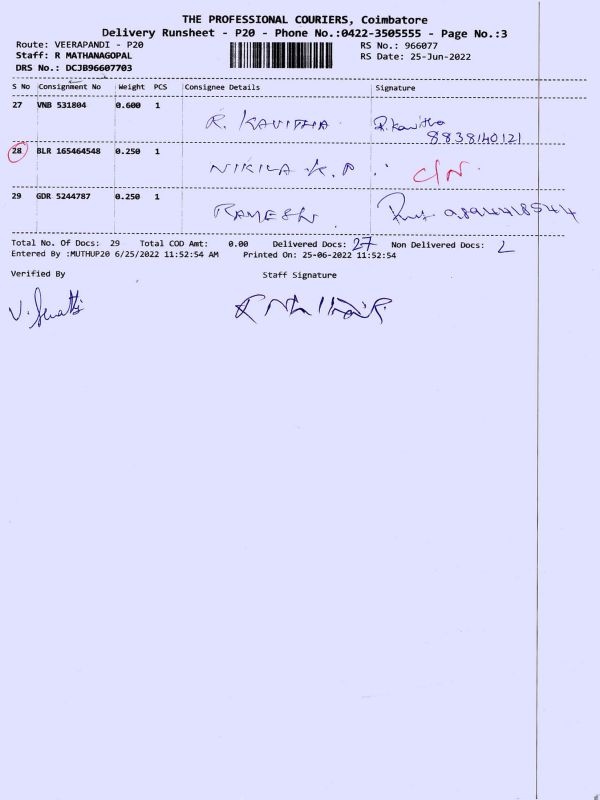 THE PROFESSIONAL COURIERS, Coimbatore
Delivery Runsheet - P20 - Phone No.:0422-3505555 - Page No.:3
Route: VEERAPANDI - P20 RS No.: 966077
Staff: R MATHANAGOPAL RS Date: 25-Jun-2022
DRS No.: DCJB96607703
S No Consignment No Weight PCS Consignee Details Signature
27 VNB 531804 0.600 1
R. KAVITHA R. Kavitha
8838140121
28 BLR 165464548 0.250 1
NIKILA K.P. C/N
29 GDR 5244787 0.250 1
RAMESH 9894418544
Total No. Of Docs: 29 Total COD Amt: 0.00 Delivered Docs: 27 Non Delivered Docs: 2
Entered By :MUTHUP20 6/25/2022 11:52:54 AM Printed On: 25-06-2022 11:52:54
Verified By Staff Signature